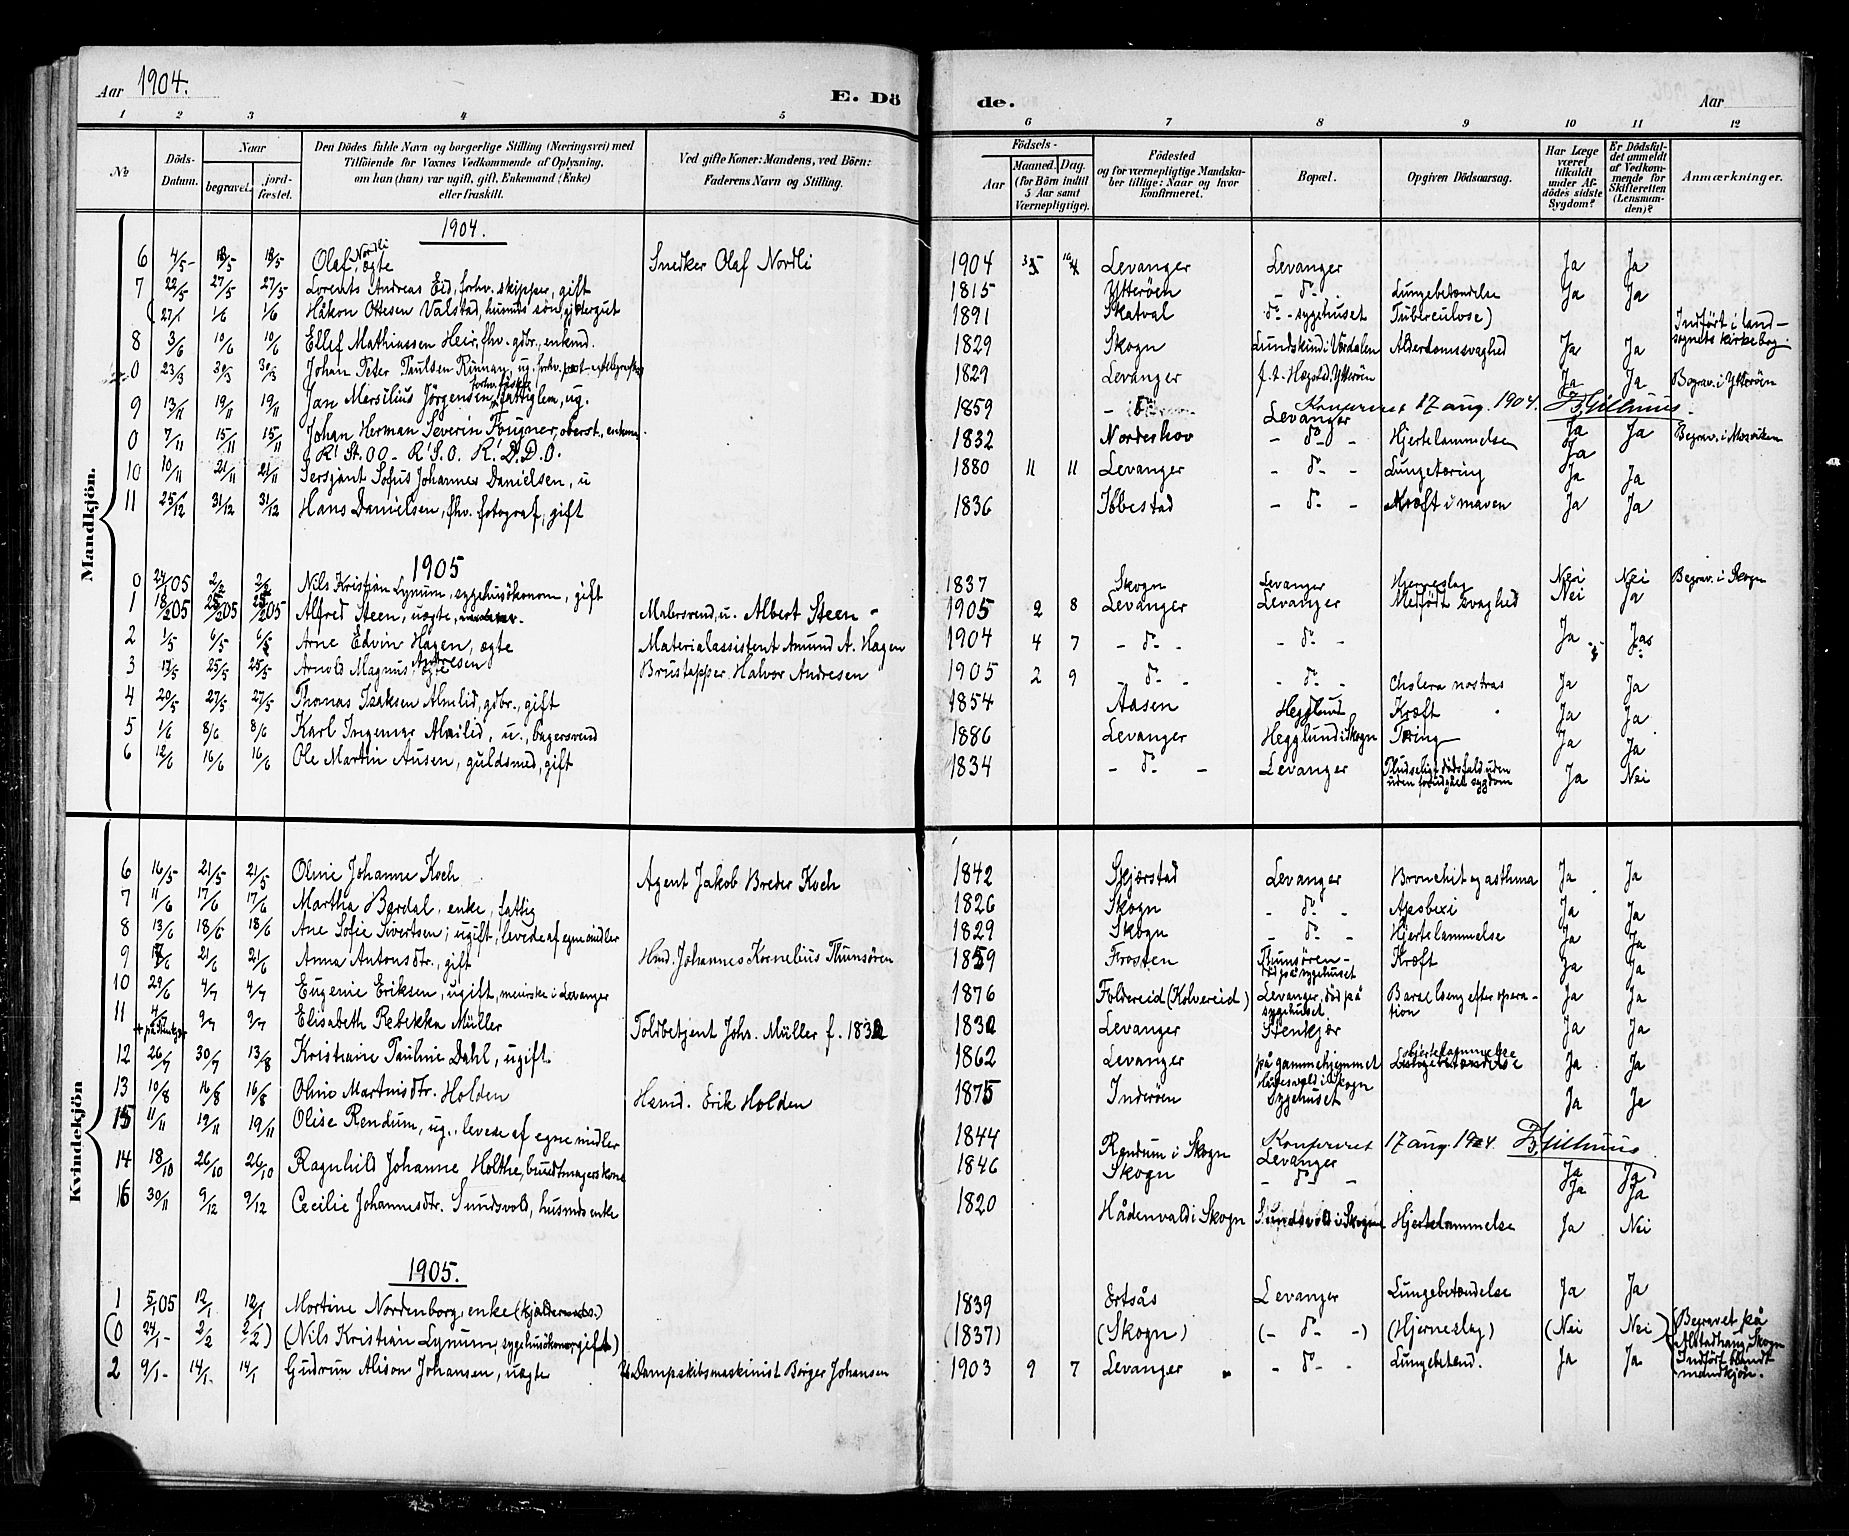 Aar 1904.
E. Dö
de.
Aar
1 2 3 4 5 6 7 8 9 10 11 12
No
Döds-Datum.
Naar
begravet.
jord-fæstet.
Den Dödes fulde Navn og borgerlige Stilling (Næringsvei) med
Tilföiende for Voxnes Vedkommende af Oplysning,
om han (hun) var ugift, gift, Enkemand (Enke)
eller fraskilt.
Ved gifte Koner: Mandens, ved Börn:
Faderens Navn og Stilling.
Födsels-
Aar
Maaned. Dag.
(for Börn indtil
5 Aar samt
Værnepligtige).
Födested
og for værnepligtige Mandska-
ber tillige: Naar og hvor
konfirmeret.
Bopæl.
Opgiven Dödsaarsag.
Har Læge
været
tilkaldt
under Af-
dödes sidste
Sygdom?
Er Dödsfal-
det anmeldt
af Vedkom-
mende for
Skifteretten
(Lensman-
den)?
Anmærkninger.
Mandkjön.
1904.
6 4/5 - 18/5 18/5 Olaf Nordli, ægte Snedker Olaf Nordli 1904 Levanger Levanger Ja Ja
7 22/5 27/5 27/5 Lorents Andreas Eid, forhv. skipper, gift 1815 Ytterøen - do - Lungebetændelse Ja Ja
(27/1 1/6 1/6 Håkon Ottesen Valstad, husmds søn, gjætergut 1891 Skatval do - sygehuset Tuberculose) Indført i land-sognets kirkebog.
8 3/6 10/6 10/6 Ellef Mathiassen Heir, fhv. gdbr., enkmd. 1829 Skogn Lundskind i Værdalen Alderdomssvaghed Ja Ja
0 23/3 30/3 30/3 Johan Peter Paulsen Rinnan, ug. forhv. post- og telegrafist 1829 Levanger f. t. Ytterøen Ja Ja Begrav. i Ytterøen
9 13/11 19/11 19/11 Jan Mersilius Jörgensen, forhv. fattiglem, ug. 1859 - do - Levanger Ja Ja
Konfereret 17 aug. 1904.
0 7/11 15/11 15/11 Johan Herman Severin Fougner, oberst., enkem. 1832 Norderhov - do - Hjertelammelse Ja Begrav. i Mosviken
R. St. O.O. - R. S. O. R. D. D. O.
10 10/11 21/11 21/11 Sersjant Sofus Johannes Danielsen, u 1880 11 11 Levanger - do - Lungetæring Ja Ja
11 25/12 31/12 31/12 Hans Danielsen, fhv. fotograf, gift 1836 Ibbestad - do - Kræft i maven Ja Ja
1905
0 24/1 05 2/2 2/2 Nils Kristian Lynum, sygehusökonom, gift 1837 Skogn Levanger Hjerneslag Nei Nei Begrav. i Skogn
1 18/2 05 25/2 05 25/2 05 Alfred Steen, uægte, Malersvend, u. Albert Steen - 1905 2 8 Levanger Levanger Medfödt svaghed Nei Ja
2 1/5 6/5 6/5 Arne Edvin Hagen, ægte Materialassistent Amund A. Hagen 1904 4 7 - do - - do - Ja Ja
3 19/5 25/5 25/5 Arnold Magnus Andresen, ægte Brustapper Halvor Andresen 1905 2 9 - do - - do - Cholera nostras Ja Ja
4 20/5 27/5 27/5 Thomas Isaksen Almlid, gdbr., gift 1854 Aasen Hegglund Kræft Ja Ja
5 1/6 8/6 8/6 Karl Ingemar Almlid, u., bagersvend 1886 Levanger Hegglund i Skogn Tæring Ja Ja
6 12/6 16/6 16/6 Ole Martin Ausen, guldsmed, gift 1834 - do - Levanger Pludseligt dödsfald uden uden forudgået sygdom Ja Nei
Kvindekjön
6 16/5 21/5 21/5 Oline Johanne Koch Agent Jakob Breder Koch 1842 Skjerstad Levanger Bronchit og asthma Ja Ja
7 11/6 17/6 17/6 Martha Bærdal, enke, fattig 1826 Skogn - do - Apoplexi Ja Ja
8 13/6 18/6 18/6 Ane Sofie Sivertsen, ugift, levede af egne midler 1829 Skogn - do - Hjertelammelse Ja Ja
9 21/6 21/6 Anna Antonsdtr., gift Hmd. Johannes Kornelius Thunsören 1859 Frosten Thunsören - död på sygehuset Kræft Ja Ja
10 29/6 4/7 4/7 Eugenie Eriksen, ugift, meierske i Levanger 1876 Foldereid (Kolvereid) Levanger, död på sygehuset Barselseng efter operation Ja Ja
11 4/7 9/7 9/7 Elisabeth Rebekka Müller Toldbetjent Johs. Müller f. 1832 1832 Levanger Stenkjær Ja Ja
12 26/7 30/7 13/8 Kristiane Pauline Dahl, ugift. 1862 Levanger på gammehjemmet i Skogn Hjertelammelse Ja Ja
13 10/8 16/8 16/8 Oline Martinsdtr. Holden Hsmd. Erik Holden 1875 Inderøen Sygehuset Ja Ja
15 11/11 19/11 19/11 Olise Rendum, ug., levede af egne midler 1844 Rendum i Skogn Levanger Ja Ja
Konfereret 17 aug. 1904.
14 18/10 26/10 26/10 Ragnhild Johanne Holthe, buudtmagerskone 1846 Skogn - do - Ja Ja
16 30/11 9/12 9/12 Cecilie Johannesdtr. Sundsvold, husmds enke 1820 Hådenvald i Skogn Sundsvold i Skogn Hjertelammelse Ja Nei
1905.
1 5/1 05 12/1 12/1 Mortine Nordenborg, enke 1839 Ertsås Levanger Lungebetændelse Ja Ja
(0 24/1 - 2/2 2/2) (Nils Kristian Lynum, sygehusökonom, gift) (1837) (Skogn) (- do -) (Hjerneslag) (Nei Nei) (Begravet på Alstadhaug, Skogn Indført blandt mandkjön.
2 9/1 - 14/1 - 14/1 Gudrun Alison Johansen, uægte Dampskibsmaskinist Börger Johansen 1903 9 7 Levanger - do - Lungebetænd. Ja Ja